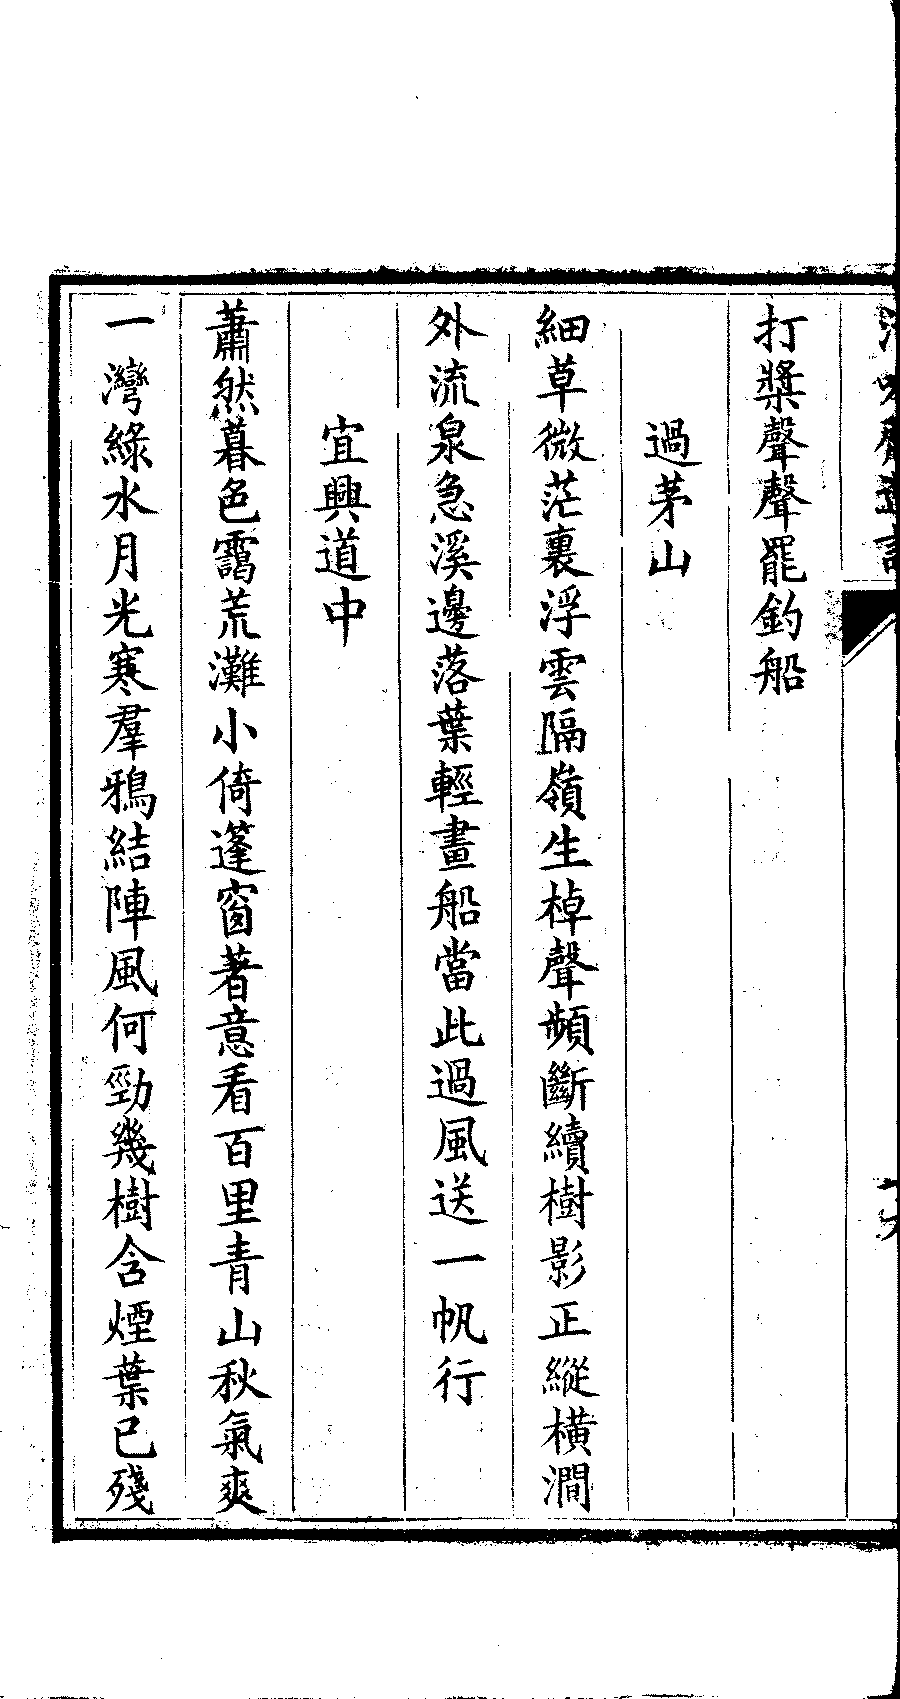 打槳聲聲罷釣船
過茅山
細草微茫裏浮雲隔嶺生棹聲頻斷續樹影正縱橫澗
外流泉急溪邊落葉輕畫船當此過風送一帆行
宜興道中
蕭然暮色靄荒灘小倚蓬窗著意看百里青山秋氣爽
一灣綠水月光寒羣鴉結陣風何勁幾樹含煙葉已殘